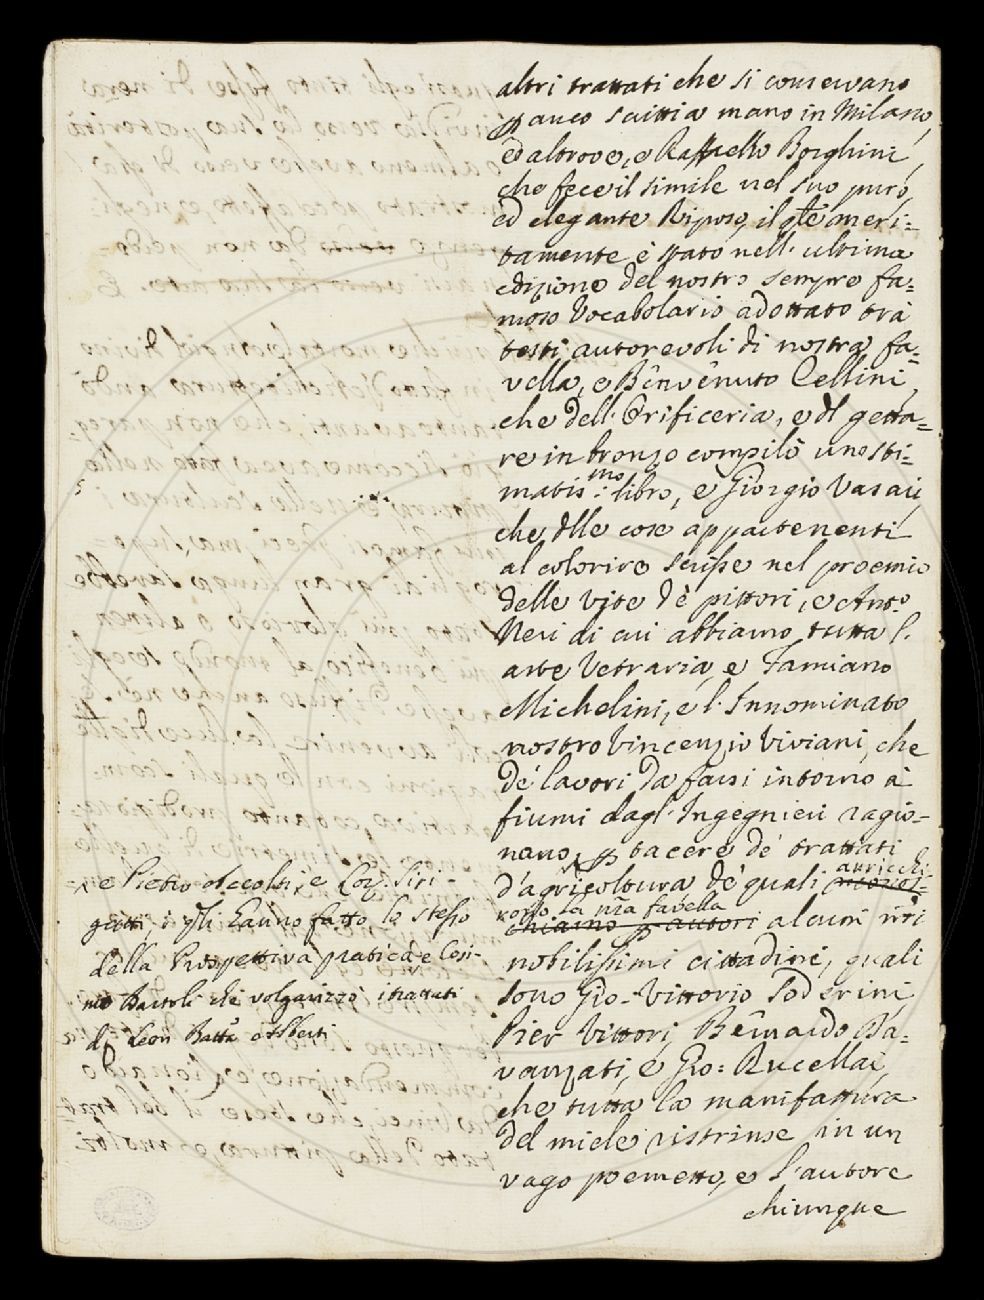 altri trattati che si conservano
p anco scritti a mano in Milano,
ed altrove, e Raffaello Borghini,
che fece il simile nel suo puro,
ed elegante Riposo, il qle meri=
tamente è stato nell' ultima
edizione del nostro sempre fa=
moso Vocabolario adottato trà
testi autorevoli di nostra fa=
vella, e Benvenuto Cellini,
che dell' Orificeria, e dl getta=
re in bronzo compilò uno sti=
matiss:mo libro, e Giorgio Vasari,
che dlle cose appartenenti
al colorire scrisse nel proemio
delle vite de' pittori, e Anto
Neri di cui abbiamo tutta l'
arte Vetraria, e Famiano
Michelini, e l' Innominato
nostro Vincenzio Viviani, che
de' lavori da farsi intorno à
fiumi dagl' Ingegnieri ragio-
nano, p tacere de' trattati
d'agricoltura de' quali arricchi
rono la nra favella
chiamo p autori alcuni nri
nobilissimi cittadini, quali
sono Gio. Vittorio Soderini,
Pier Vittori, Bernardo Da=
vanzati, e Gio: Rucellai,
che tutta la manifattura
del miele ristrinse in un
vago poemetto, e l' autore
chiunque
e Pietro Accolti, e Lor. Siri-
gatti, i qli hanno fatto lo stesso
della Prospettiva pratica e Cosi-
mo Bartoli che volgarizzò i trattati
di Leon Batta Alberti